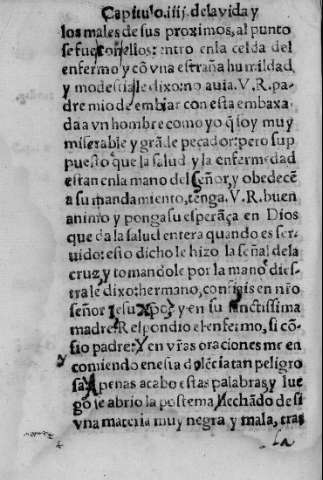 Capitulo.iiij.dela vida y
los males de sus proximos, al punto
se fue con ellos: entro en la celda del
enfermo y cõ vna estraña humildad
y modestia le dixo: no auia. V. R. pa-
dre mio de embiar con esta embaxa-
da a vn hombre como yo q̃ soy muy
miserable y grã.le pecador: pero sup
puesto que la salud y la enfermedad
estan en la mano del señor, y obedecẽ
a su mandamiento, tenga. V. R. buen
animo y ponga su esperãça en Dios
que da la salud entera quando es ser-
uido: esto dicho le hizo la señal de la
cruz, y tomandole por la mano dies-
tra le dixo: hermano, confijs en nr̃o
señor Iesu Xpo, y en su sanctissima
madre. Respondio el enfermo, si cõ-
fio padre: y en vr̃as oraciones me en
comiendo en esta dolẽcia tan peligro
sa. Apenas acabo estas palabras, y lue
go se abrio la postema, y echãdo de si
vna materia muy negra y mala, tras
la